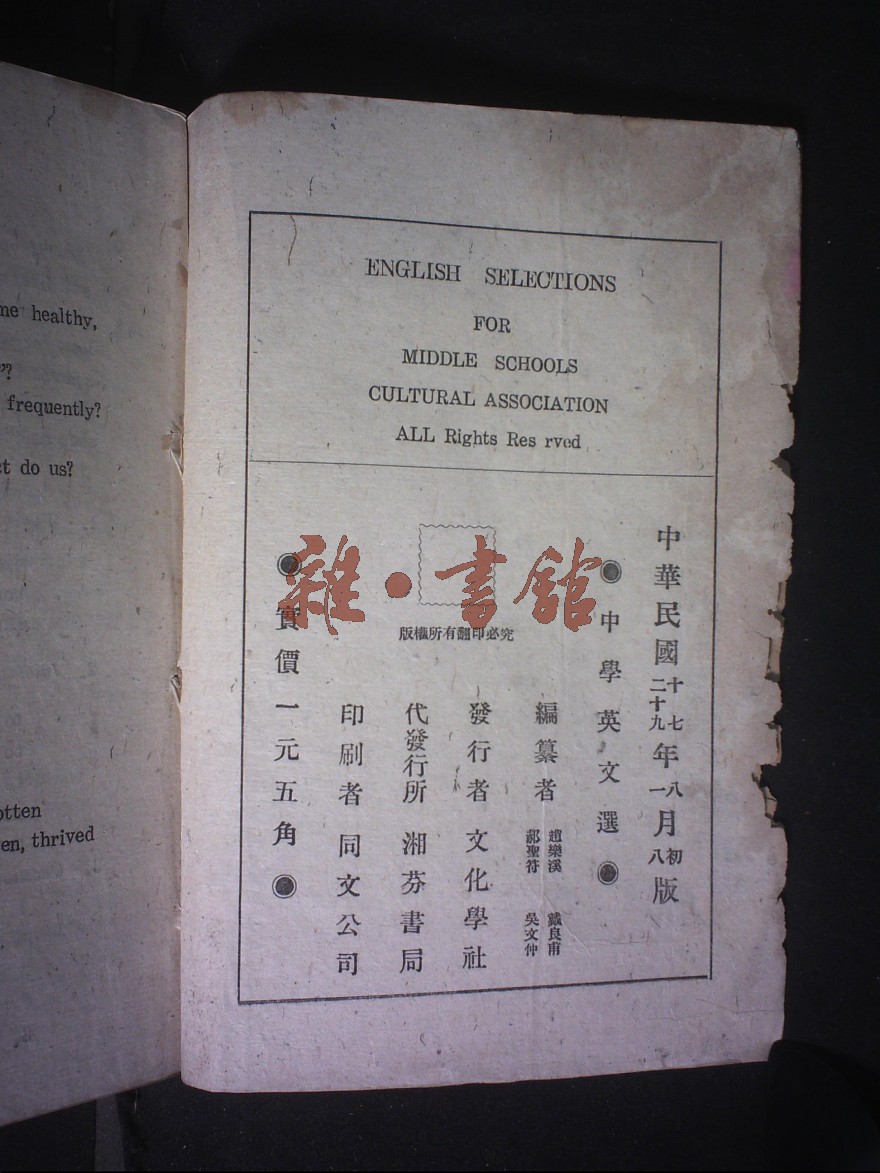 me healthy,
frequently?
ct do us?
otten
en, thrived
ENGLISH SELECTIONS
FOR
MIDDLE SCHOOLS
CULTURAL ASSOCIATION
ALL Rights Res rved
中華民國十七二十九年八一月初八版
中學英文選
編纂者 趙樂溪 戴良甫 郝聖符 吳文仲
發行者 文化學社
代發行所 湘芬書局
版權所有翻印必究
印刷者 同文公司
實價一元五角
雜·書館